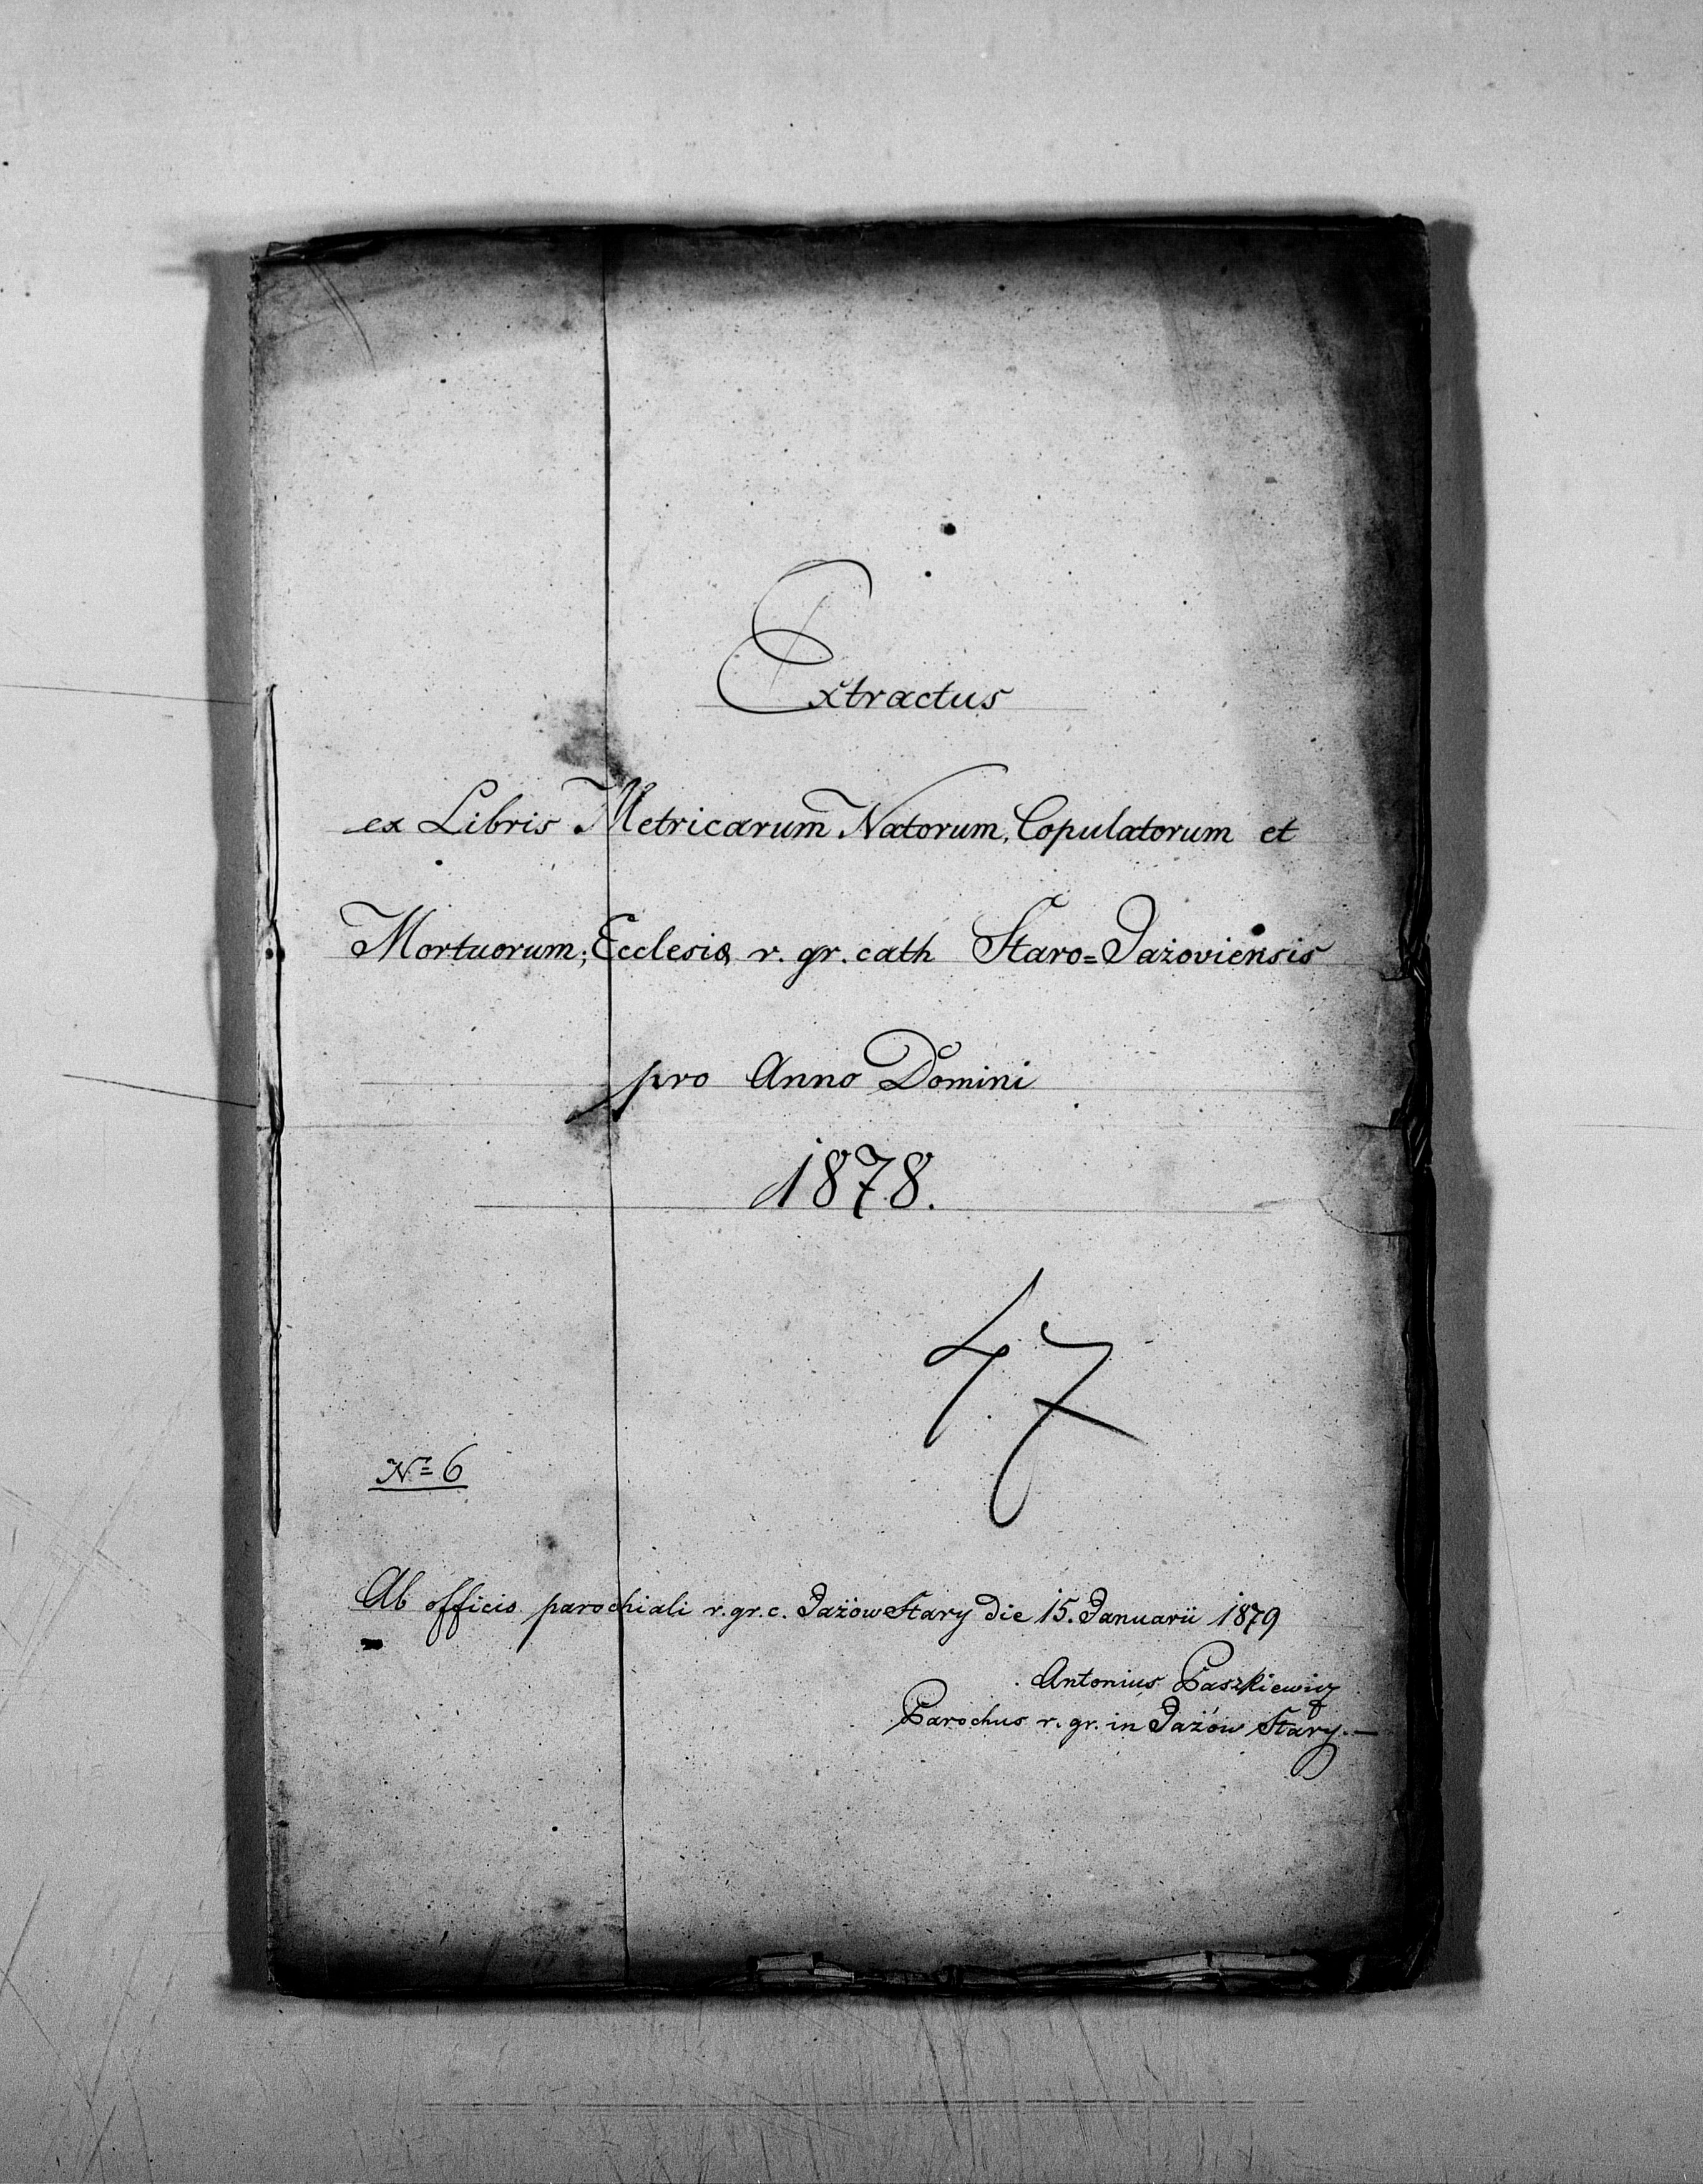 Extractus
ex Libris Metricarum Natorum, Copulatorum et
Mortuorum; Ecclesiæ r. gr. cath Staro=Jażoviensis
pro Anno Domini
1878.
47
No 6
Ab officio parochiali r. gr. c. Jażów Stary die 15. Januarii 1879
Antonius Paszkiewicz
Parochus r. gr. in Jażów Stary.—